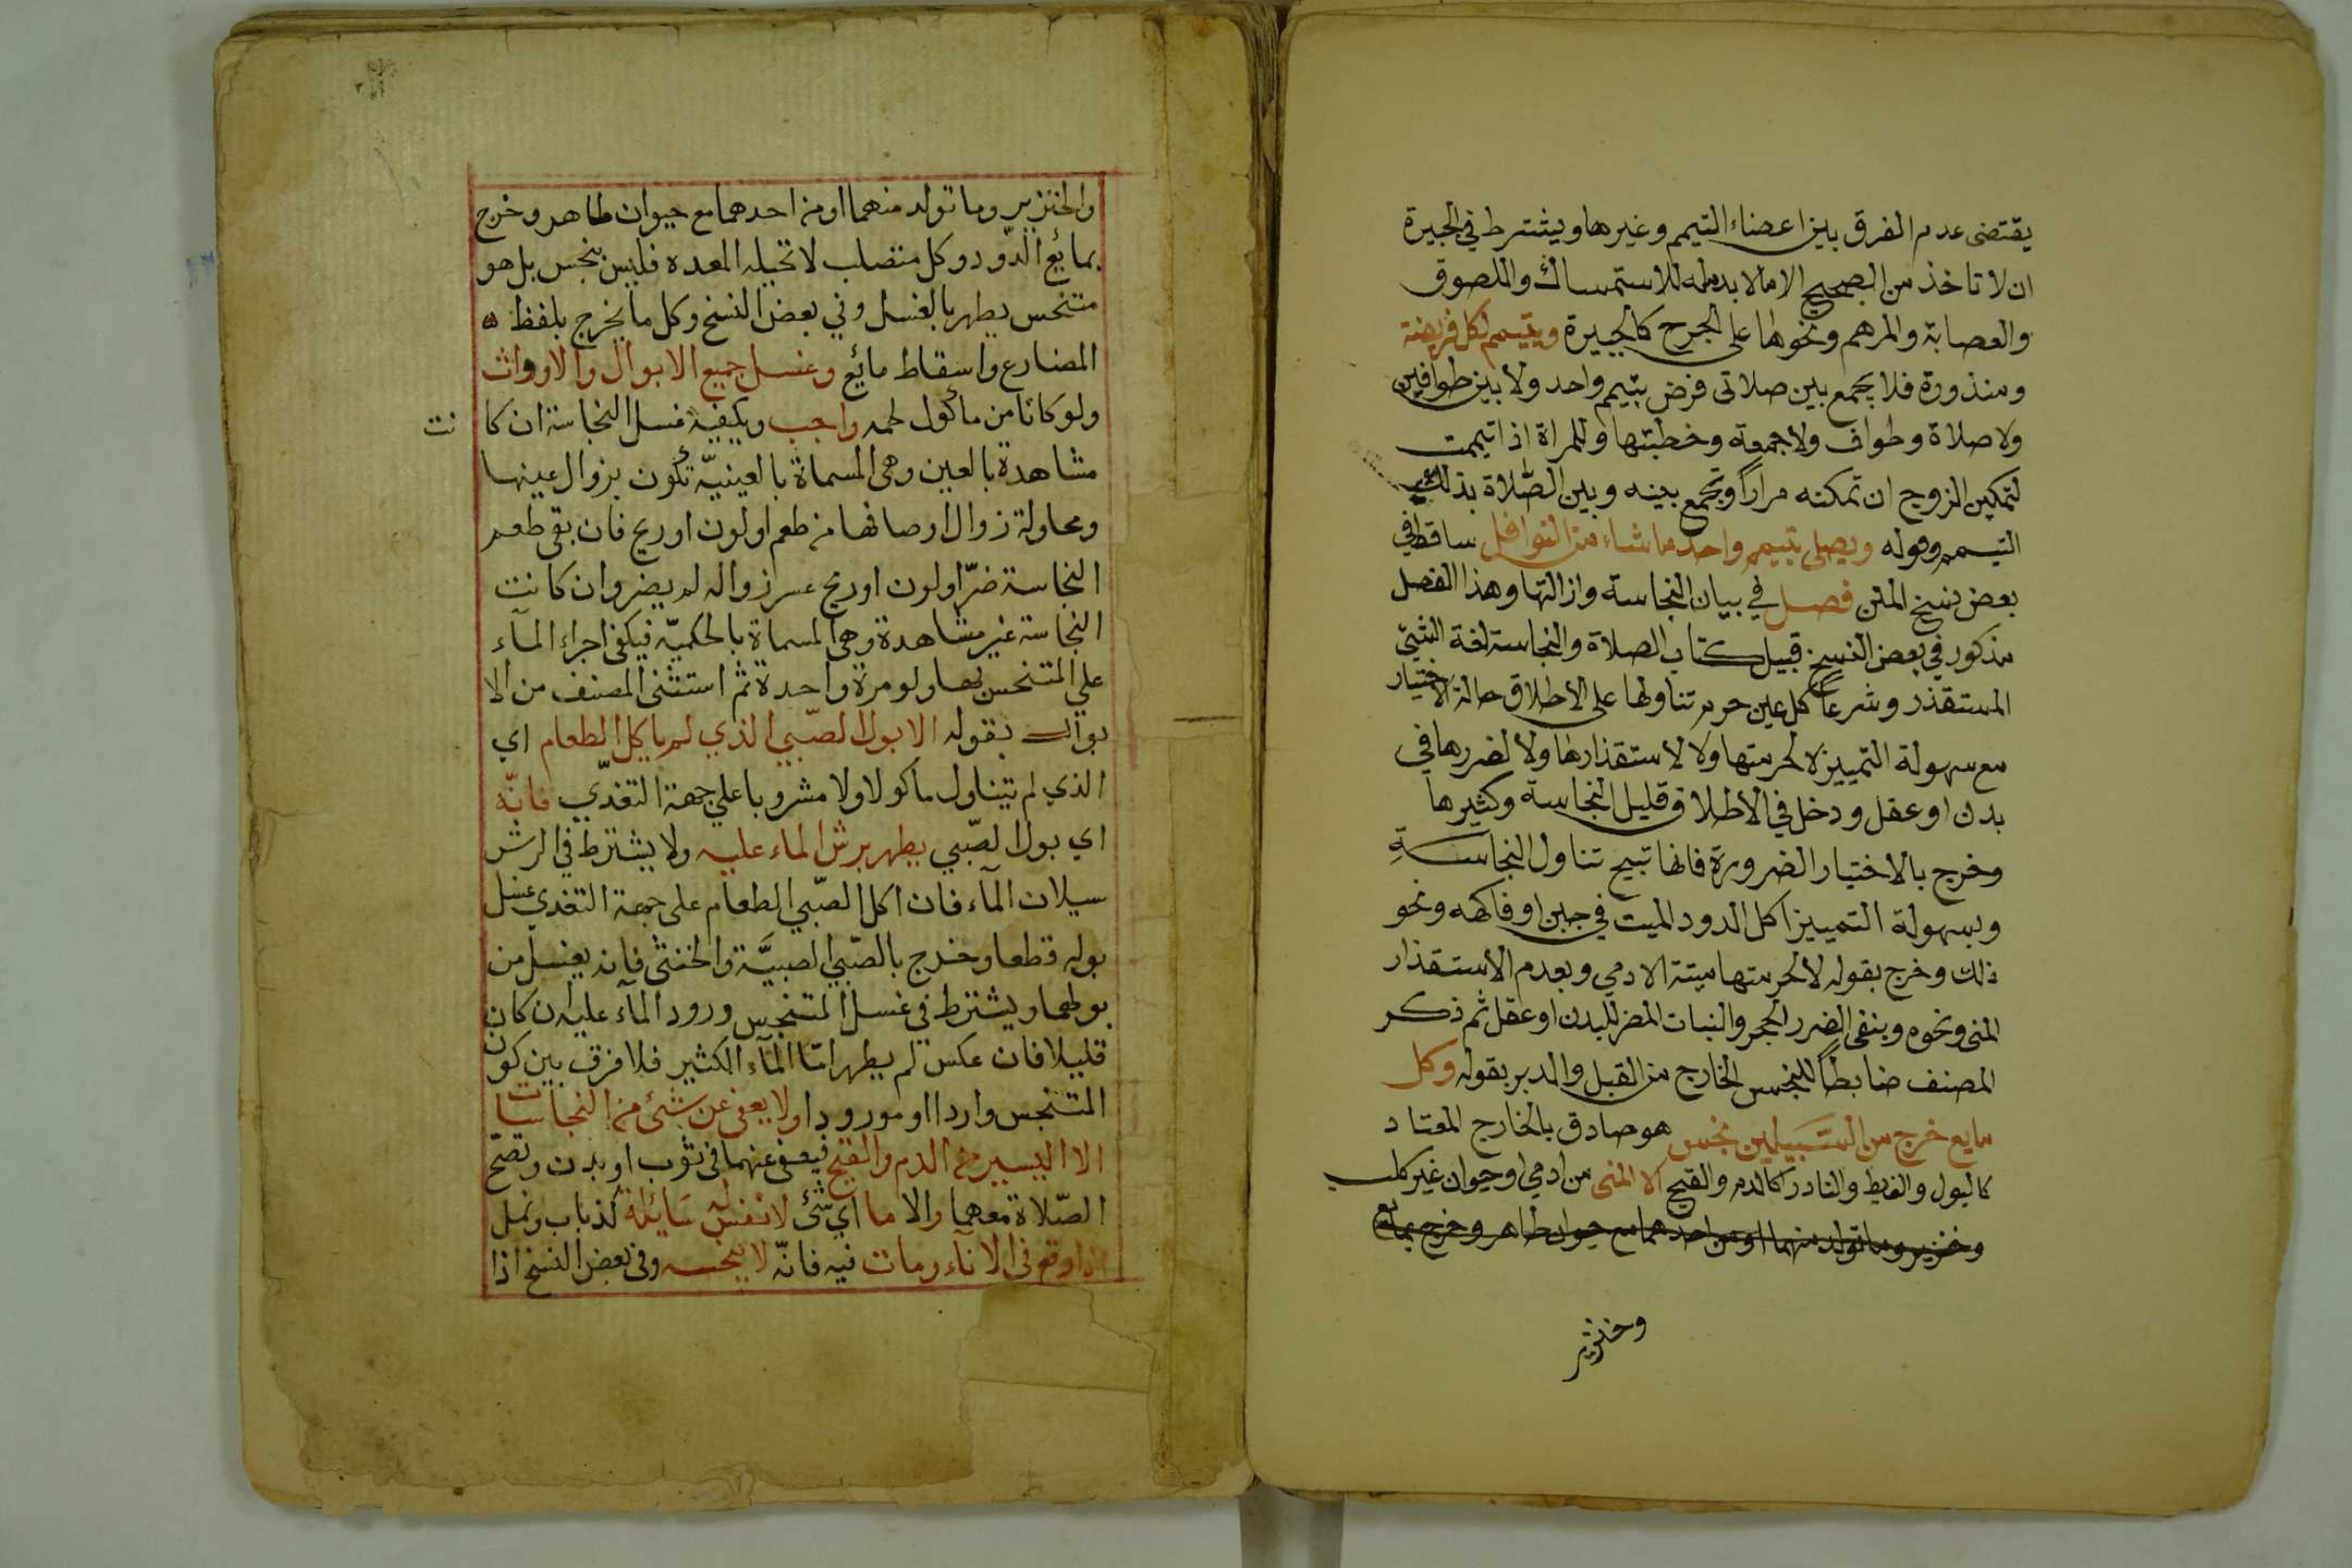 يقتضى عدم الفرق بين اعضاء التيمم وغيرها ويشترط في الجبيرة
ان لا تاخذ من الصحيح الا مالا بد منه للاستمساك واللصوق
والعصابة والمرهم ونحوها على الجرح كالجبيرة ويتيمم لكل فريضة
ومنذورة فلا يجمع بين صلاتى فرض بتيمم واحد ولا بين طوافين
ولا صلاة وطواف ولا جمعه وخطبتها وللمراة اذا تيممت
لتمكين الزوج ان تمكنه مراراً وتجمع بينه وبين الصّلاة بذلك
التيمم وقوله ويصلى بتيمم واحد ما شاء من النوافل ساقط في
بعض نسخ المتن فصل في بيان النجاسة وازالتها وهذا الفصل
مذكور في بعض النسخ قبيل كتاب الصلاة والنجاسة لغة الشئ
المستقذر وشرعاً كل عين حرم تناولها على الاطلاق حالة الاختيار
مع سهولة التمييز لا لحرمتها ولا لاستقذارها ولا لضررها في
بدن او عقل ودخل في الاطلاق قليل النجاسة وكثيرها
وخرج بالاختيار الضرورة فانها تبيح تناول النجاسةِ
وبسهولة التمييز اكل الدود الميت في جبن او فاكهه ونحو
ذلك وخرج بقوله لا لحرمتها ميتة الادمي وبعدم الاستقذار
المنى ونحوه وبنفى الضرر الحجر والنبات المضر للبدن او عقل ثم ذكر
المصنف ضابطاً للنجس الخارج من القبل والدبر بقوله وكل
مايع خرج من السّبيلين نجس هو صادق بالخارج المعتاد
كالبول والغيط والنادر كالدم والقيح الا المنى من ادمي او حيوان غير كلب
وخنزير وما تولد منهما او من احدهما مع حيوان طاهر وخرج بمائع
وخنزير
والخنزير وما تولد منهما او من احدهما مع حيوان طاهر وخرج
بمائع الدّود وكل متصلب لا تحيله المعده فليس بنجس بل هو
متنجس يطهر بالغسل وفي بعض النسخ وكل ما يخرج بلفظ ه
المضارع واسقاط مائع وغسل جميع الابوال والارواث
ولو كانا من مأكول لحمه واجب وكيفية غسل النجاسة ان كا نت
مشاهدة بالعين وهى المسماة بالعينيّه تكون بزوال عينها
ومحاولة زوال اوصافها من طعم او لون او ريح فان بقى طعم
النجاسة ضرّ او لون او ريح عسر زواله لم يضر وان كانت
النجاسة غير مشاهدة وهى المسماة بالحكميّه فيكفى اجراء المآء
على المتنجس بها ولو مرة واحدة ثم استثنى المصنف من الا
بوال بقوله الا بول الصّبي الذي لم ياكل الطعام اي
الذي لم يتناول ماكولا ولا مشروبا على جهة التغذّي فانّه
اي بول الصّبي يطهر برش الماء عليه ولا يشترط في الرش
سيلان المآء فان اكل الصّبي الطعام على جهة التغذي غسل
بوله قطعا وخرج بالصّبي الصبيَّة والخنثى فانه يغسل من
بولهما ويشترط في غسل المتنجس ورود المآء عليه ان كان
قليلا فان عكس لم يطهر امّا المآء الكثير فلا فرق بين كون
المتنجس واردا او مورودا ولا يعفى عن شئ من النجاسات
الا اليسير من الدم والقيح فيعفى عنهما في ثوب او بدن وتصّح
الصّلاة معهما والا ما اي شئ لا نفس له سَائلة كذباب ونمل
اذا وقع فى الانآء ومات فيه فانّه لا ينجسه وفى بعض النسخ اذا